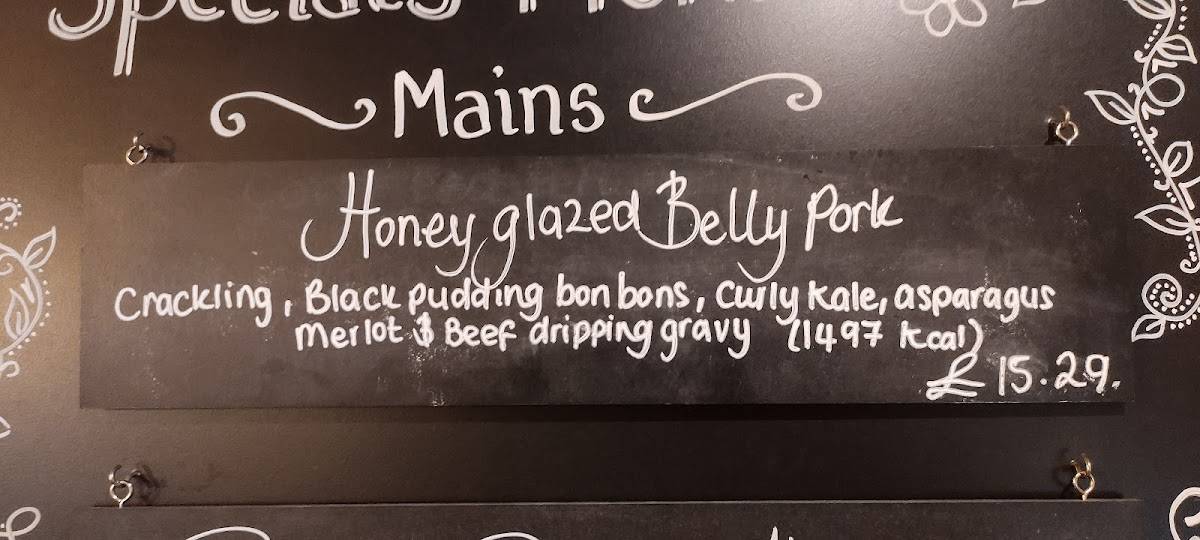 Specials Menu
Mains
Honey glazed Belly Pork
Crackling, Black pudding bon bons, Curly kale, asparagus
Merlot & Beef dripping gravy (1497 kcal)
£15.29.